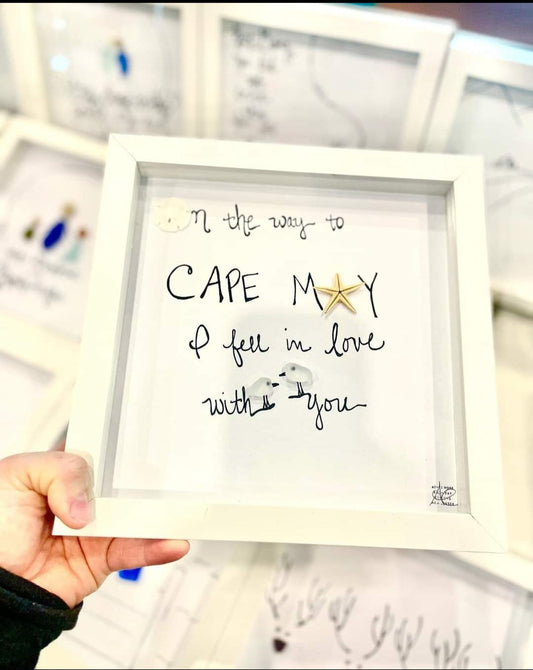 On the way to
CAPE MAY
I fell in love
with you